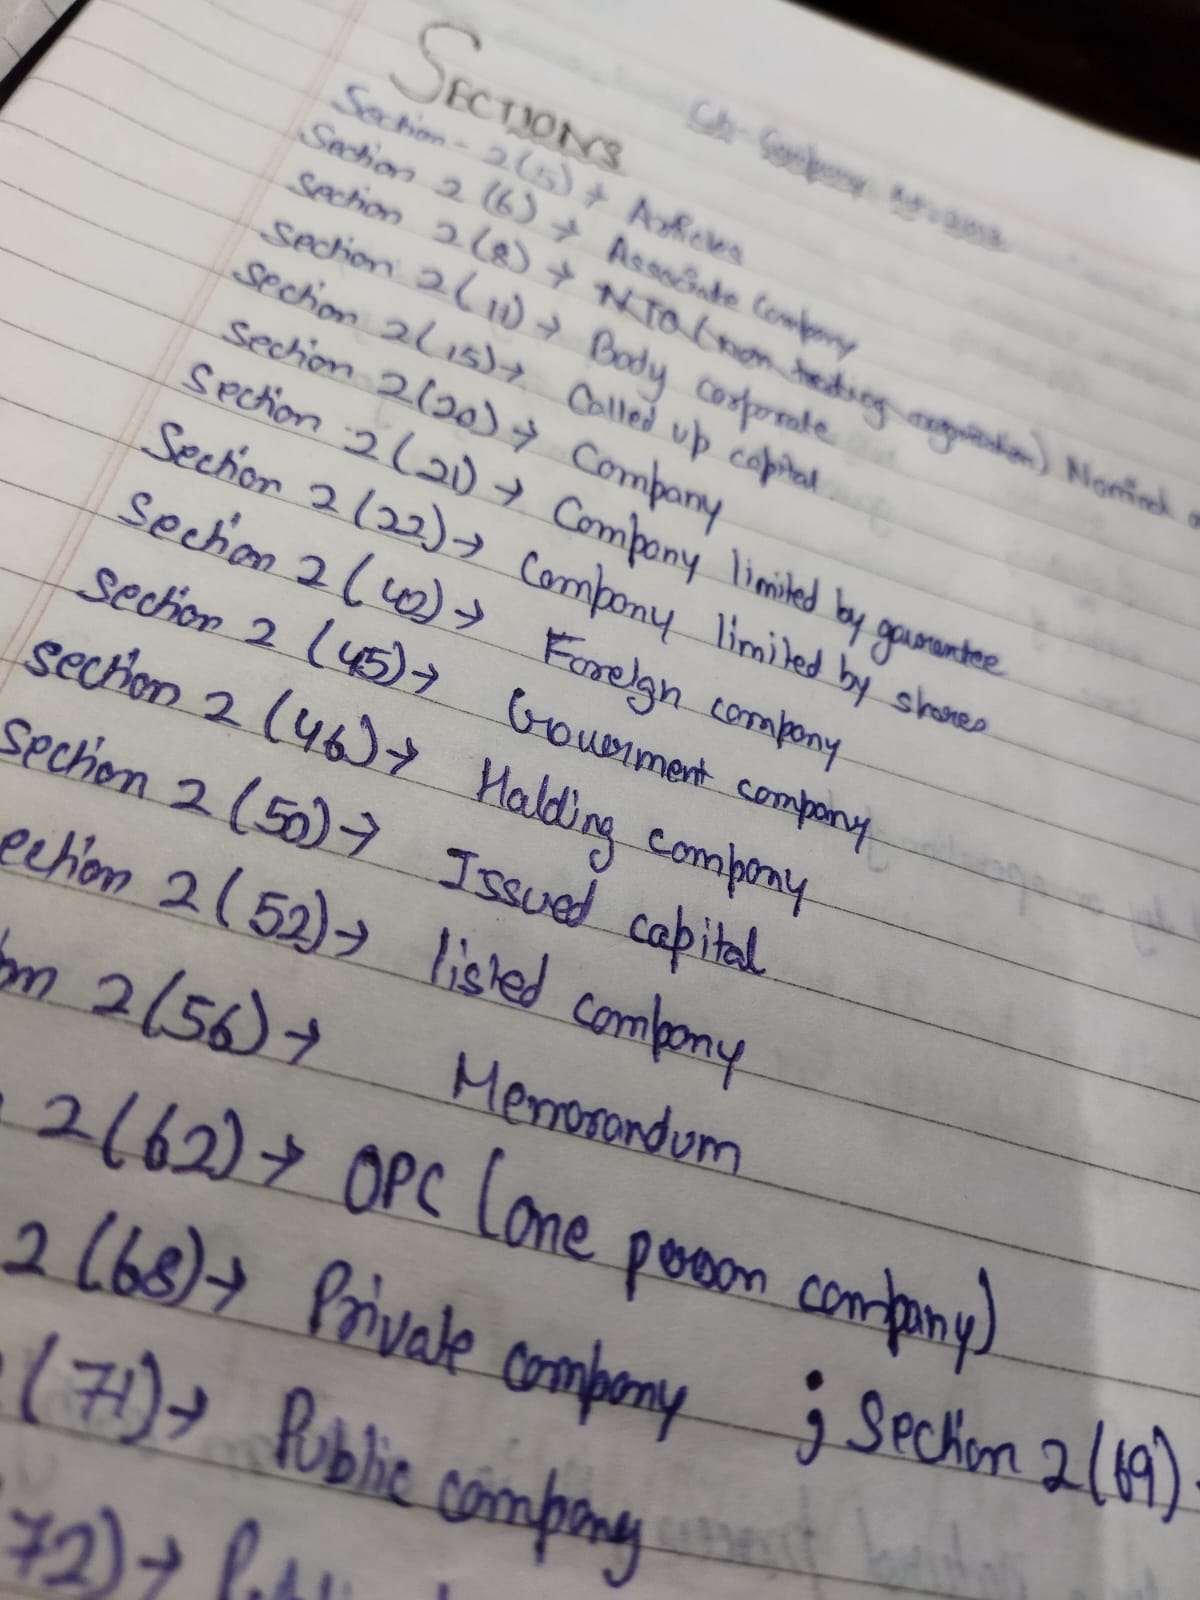 SECTIONS
Section - 2(5) → Articles
Section 2(6) → Associate Company
Section 2(8) → NTO (non trading organisation)
Section 2(11) → Body corporate
Section 2(15) → Called up capital
Section 2(20) → Company
Section 2(21) → Company limited by gaurantee
Section 2(22) → Company limited by shares
Section 2(42) → Foreign company
Section 2(45) → Government company
Section 2(46) → Holding company
Section 2(50) → Issued capital
ection 2(52) → listed company
2(56) → Memorandum
2(62) → OPC (one person company)
2(68) → Private company ; Section 2(69)
(71) → Public company
72) →